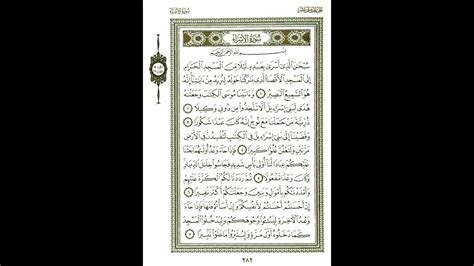 الجزء الخامس عشر سورة الإسراء
سُورَةُ الإِسْرَاءِ
بِسْمِ اللَّهِ الرَّحْمَٰنِ الرَّحِيمِ
سُبْحَٰنَ ٱلَّذِىٓ أَسْرَىٰ بِعَبْدِهِۦ لَيْلًا مِّنَ ٱلْمَسْجِدِ ٱلْحَرَامِ
إِلَى ٱلْمَسْجِدِ ٱلْأَقْصَا ٱلَّذِى بَٰرَكْنَا حَوْلَهُۥ لِنُرِيَهُۥ مِنْ ءَايَٰتِنَآ إِنَّهُۥ
هُوَ ٱلسَّمِيعُ ٱلْبَصِيرُ ١ وَءَاتَيْنَا مُوسَى ٱلْكِتَٰبَ وَجَعَلْنَٰهُ
هُدًى لِّبَنِىٓ إِسْرَٰٓءِيلَ أَلَّا تَتَّخِذُوا۟ مِن دُونِى وَكِيلًا ٢
ذُرِّيَّةَ مَنْ حَمَلْنَا مَعَ نُوحٍ إِنَّهُۥ كَانَ عَبْدًا شَكُورًا ٣
وَقَضَيْنَآ إِلَىٰ بَنِىٓ إِسْرَٰٓءِيلَ فِى ٱلْكِتَٰبِ لَتُفْسِدُنَّ فِى ٱلْأَرْضِ
مَرَّتَيْنِ وَلَتَعْلُنَّ عُلُوًّا كَبِيرًا ٤ فَإِذَا جَآءَ وَعْدُ أُولَىٰهُمَا بَعَثْنَا
عَلَيْكُمْ عِبَادًا لَّنَآ أُو۟لِى بَأْسٍ شَدِيدٍ فَجَاسُوا۟ خِلَٰلَ ٱلدِّيَارِ
وَكَانَ وَعْدًا مَّفْعُولًا ٥ ثُمَّ رَدَدْنَا لَكُمُ ٱلْكَرَّةَ عَلَيْهِمْ
وَأَمْدَدْنَٰكُم بِأَمْوَٰلٍ وَبَنِينَ وَجَعَلْنَٰكُمْ أَكْثَرَ نَفِيرًا ٦
إِنْ أَحْسَنتُمْ أَحْسَنتُمْ لِأَنفُسِكُمْ وَإِنْ أَسَأْتُمْ فَلَهَا فَإِذَا جَآءَ
وَعْدُ ٱلْءَاخِرَةِ لِيَسُۥٓـُٔوا۟ وُجُوهَكُمْ وَلِيَدْخُلُوا۟ ٱلْمَسْجِدَ
كَمَا دَخَلُوهُ أَوَّلَ مَرَّةٍ وَلِيُتَبِّرُوا۟ مَا عَلَوْا۟ تَتْبِيرًا ٧
٢٨٢